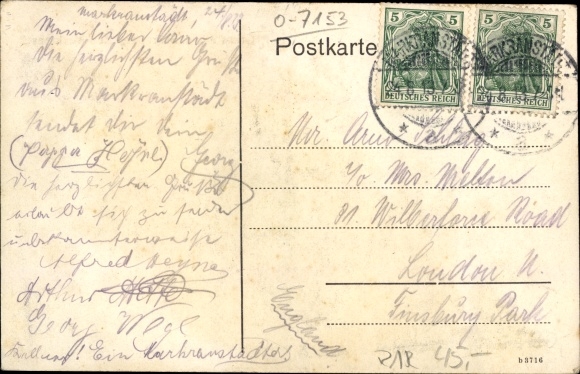 Markranstädt, 24/8 13
Mein lieber Arno
die herzlichsten Grüße
aus Markranstädt
sendet dir dein
(Pappa Georg
die herzlichsten Grüße
erlaubt sich zu senden
unbekannterweise
Alfred
Arthur
Georg
Ein Markranstädter
O-7153
Postkarte
5 5
DEUTSCHES REICH
5 5
DEUTSCHES REICH
MARKRANSTÄDT
MARKRANSTÄDT
Mr. Arno
c/o Mrs. Melton
91. Wilberforce Road
London N.
Finsbury Park
England
45,-
b 3716